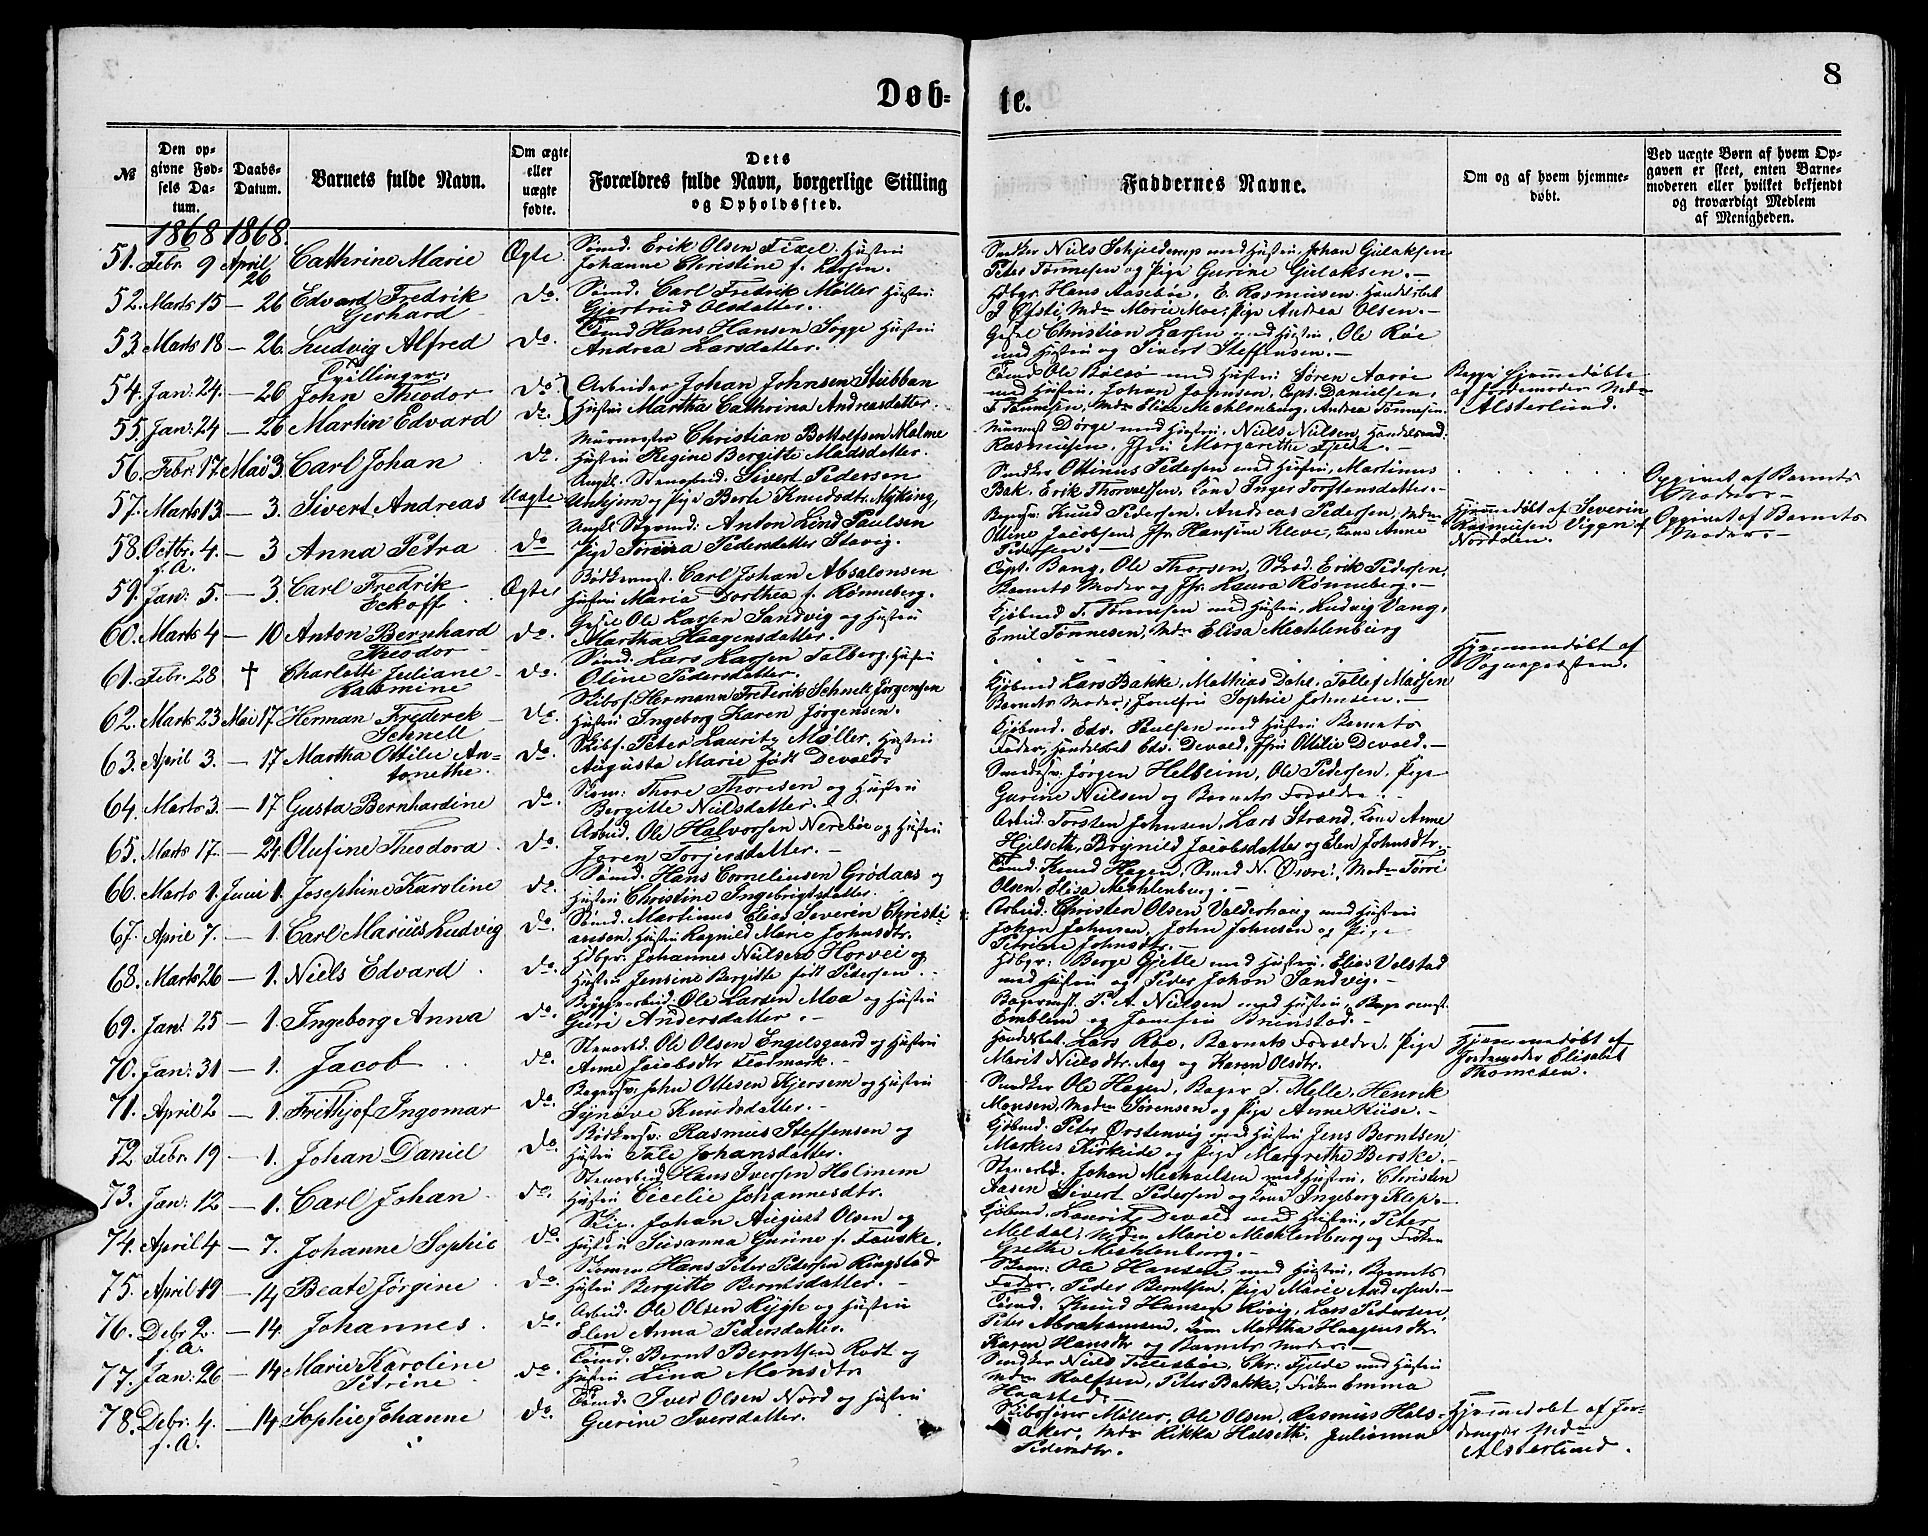 8
Døb-
te.
№
Den opgivne Fødsels Datum.
Daabs-Datum.
Barnets fulde Navn.
Om ægte eller uægte fødte.
Dets Forældres fulde Navn, borgerlige Stilling og Opholdssted.
Faddernes Navne.
Om og af hvem hjemmedøbt.
Ved uægte Børn af hvem Opgaven er skeet, enten Barnemoderen eller hvilket bekjendt og troværdigt Medlem af Menigheden.
1868 1868.
51. Febr. 9 April 26 Cathrine Marie Ægte Sømd. Erik Olsen Fixel Hustru
Johanne Christine f. Larsen.
Snedker Niels Schjelderup med Hustru, Johan Gjelaksen
Peter Tønnesen og Pige Gurine Gjelaksen.
52. Marts 15 — 26 Edvard Fredrik Gerhard do. Sømd. Carl Fredrik Møller Hustru
Gjertrud Olsdatter.
Hdbgr. Hans Aasebøe, E. Rasmussen Handelsbet
J. Øfsti, Mdm Marie Moe, Pige Andrea Olsen.
53. Marts 18 — 26. Ludvig Alfred do. Tømd Hans Hansen Sogge Hustru
Andrea Larsdatter.
Gesel Christian Larsen med Hustru, Ole Røe
med Hustru og Sivert Steffensen.
Tvillinger
54. Jan: 24. — 26 John Theodor do. Arbeider Johan Johnsen Stubban
55. Jan: 24 — 26 Martin Edvard do. Hustru Martha Cathrina Andreasdatter.
med Hustru Søren Aarøe
med Hustru, Johan Johnsen, Capt. Danielsen,
T. Tønnesen, Mdm Elise Mechlenburg, Andrea Tønnesen.
Begge hjemmedøbte
af Jordemoder Mdm
Alsterlund.
56. Febr: 17 Mai 3. Carl Johan do. Murmester Christian Bottolfsen Malme
Hustru Regine Bergitte Madsdatter.
Murmst Dørge med Hustru, Niels Nielsen, Handelsmd.
Rasmussen, Jfru Margarethe Fjelde.
57. Marts 13 — 3. Sivert Andreas Uægte Sivert Pedersen
og Pige Berte Knudsdtr. Myking,
Snedker Ottinus Pedersen med Hustru, Martinus
Bak, Erik Thorvaldsen, Kone Inger Torstensdatter.
Opgivet af Barnets
Moder.
58. Octbr. 4. f.A. — 3 Anna Petra do Anton Lind Paulsen
Pige Sørina Pedersdatter Stavig.
Knud Pedersen, Andreas Pedersen, Mdm
Oline Jacobsen, Jfr. Hansine Kleve, Kone Anne
Pedersen.
Hjemmedøbt af Severin
Rasmussen Viggen af
Norddøn.
Opgivet af Barnets
Moder.
59. Jan: 5. — 3. Carl Fredrik Eckoff Ægte Bødkermst. Carl Johan Absalonsen
Hustru Maria Dorthea f. Rønneberg.
Capt. Bang, Ole Thorsen, Erik Pedersen,
Barnets Moder og Jfr. Laura Rønneberg.
60. Marts 4 — 10 Anton Bernhard Theodor do. Gesel Ole Larsen Sandvig og Hustru
Martha Haagensdatter.
Kjøbmd T. Tønnesen med Hustru, Ludvig Vang,
Emil Tønnesen, Mdm Elisa Mechlenburg
61. Febr. 28 † Charlotte Juliane Rasmine do. Sømd. Lars Larsen Talberg, Hustru
Oline Pedersdatter.
Hjemmedøbt af
Sognepræsten.
62. Marts 23 Mai 17 Herman Frederek Schnell do. Skibsf. Hermann Frederik Schnell Jørgensen
Hustru Ingeborg Karen Jørgensen.
Kjøbmd Lars Bakke, Mathias Dahl, Tollef Madsen
Barnets Moder, Jomfru Sophie Johnsen.
63. April 3. — 17 Martha Ottilie Antonethe. do. Skibsf. Peter Lauritz Møller, Hustru
Augusta Marie født Devold.
Kjøbmd. Edv. Paulsen med Hustru Barnets
Fader, Handelsbet Edv. Devold, Jfru Ottilie Devold.
64. Marts 3. — 17 Gusta Bernhardine do. Thore Thoresen og Hustru
Bergitte Nielsdatter.
Jørgen Helseim, Ole Pedersen, Pige
Gurine Nielsen og Barnets Forældre.
65. Marts 17. — 24 Olufine Theodora do. Arbeid. Ole Halvorsen Nerebøe og Hustru
Joren Torjersdatter.
Arbeid. Torsten Johnsen, Lars Strand, Kone Anne
Hjelseth, Brynild Jacobsdatter og Elen Johnsdtr.
66. Marts 1. Juni 1. Josephine Karoline do. Sømd. Hans Corneliusen Grødaas og
Hustru Christine Ingebrigtsdatter.
Tømd. Knud Hagen, Smed N. Øvre, Mdm Tørri
Olsen, Elisa Mechlenburg.
67. April 7. — 1. Carl Marius Ludvig do. Sømd. Martinus Elias Severin Christiansen,
Hustru Ragnild Marie Johnsdtr.
Arbeid: Christen Olsen Valderhaug med Hustru
Johan Johnsen, John Johnsen og Pige
Petrine Johnsdtr.
68. Marts 26 — 1. Niels Edvard do. Hdbgr. Johannes Nielsen Horvei og
Hustru Jensine Bergitte født Pedersen
Hdbgr: Berge Gjetle med Hustru, Elias Volstad
med Hustru og Peder Johan Sandvig.
69. Jan: 25 — 1. Ingeborg Anna do. Bryggearbeid. Ole Larsen Moa og Hustru
Guri Andersdatter.
Bagermst. P. A. Nielsen med Hustru, Bagermst.
Emblem og Jomfru Brunstad.
70. Jan: 31 — 1. Jacob do. Stenarbd. Ole Olsen Engelsgaard og Hustru
Anne Jacobsdtr Fladmark.
Handelsbet. Lars Røe, Barnets Forældre, Pige
Marit Nielsdtr. Aag og Karen Olsdtr.
Hjemmedøbt af
Jordemoder Elisabet
Thomesen.
71. April 2 — 1. Frithjof Ingomar do. Bagersv. John Ottesen Kjersem og Hustru
Synøve Knudsdatter.
Snedker Ole Hagen, Bager T. Melle, Henrik
Monsen, Mdm Sørensen og Pige Anne Kiise.
72 Febr. 19 — 1. Johan Daniel do Bødkersv. Rasmus Steffensen og
Hustru Tale Johansdatter.
Kjøbmd. Peter Ørstenvig med Hustru Jens Berntsen,
Markus Kirkeide og Pige Margrethe Berske.
73. Jan: 12 — 1. Carl Johan do. Stenarbeid Hans Iversen Holmem
Hustru Cicelie Johannesdtr.
Stenarbd. Johan Mechaelsen med Hustru, Christen
Aasen Sivert Pedersen og Kone Ingeborg Klep.
74. April 4 — 7. Johanne Sophie do. Johan August Olsen og
Hustru Susanna Gurine f. Fauske.
Kjøbmd. Lauritz Devold med Hustru, Peter
Meldal, Mdm Marie Mechlenburg og Frøken
Grethe Mechlenburg.
75. April 19 — 14 Beate Jørgine do. Hans Peter Petersen Ringstad
Hustru Bergitte Berntsdatter.
Ole Hansen med Hustru, Barnets
Fader, Peder Berntsen, Pige Marie Andersen.
76. Debr. 2. f.A. — 14. Johannes. do. Arbeid. Ole Olsen Rygh og Hustru
Elen Anna Pedersdatter.
Tømd. Knud Hansen Røvig, Lars Pedersen,
Peter Abrahamsen, Kone Martha Haagensdtr.
Karen Hansdtr og Barnets Moder.
77. Jan: 26 — 14 Marie Karoline Petrine do. Tømd. Bernt Berntsen Rødt og
Hustru Lina Monsdtr
Snedker Niels Tellesbøe, Chr: Fjelde med Hustru
Mdm Rolfsen, Peter Bakke, Frøken Emma
Haasted.
78. Debr: 4. f.A. — 14 Sophie Johanne do. Tømd. Iver Olsen Nord og Hustru
Gurine Iversdatter.
Skibsfører Møller, Ole Olsen, Rasmus Halsaker,
Mdm Rikka Halseth, Julianna
Pedersdtr.
Hjemmedøbt af Jordemoder
Mdm
Alsterlund.